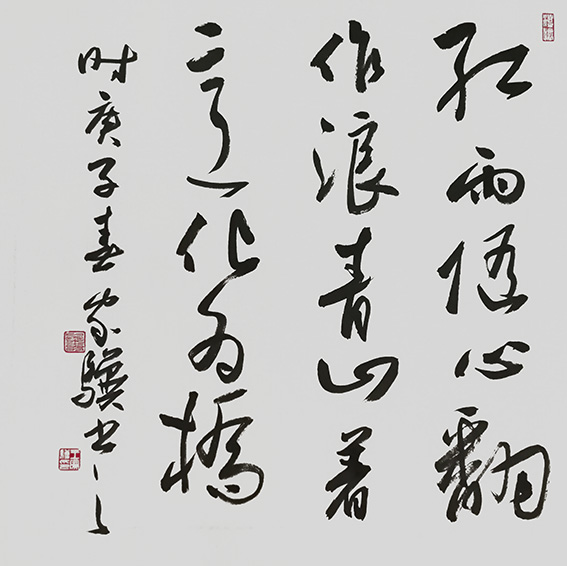 红雨随心翻
作浪青山着
意化为橋
时庚子春家驥书之